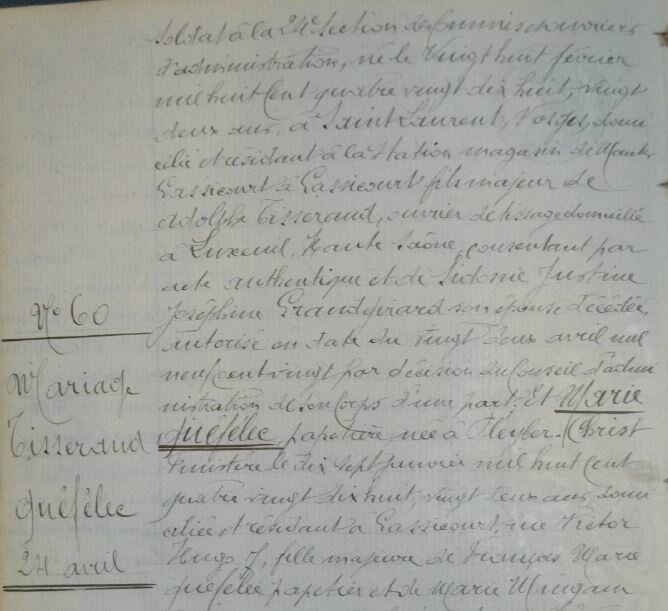 soldat à la 24e Section de Commis et ouvriers
d'administration, né le vingt huit février
mil huit cent quatre vingt dix huit, vingt
deux ans, à Saint Laurent, Vosges, domi
cilié et résidant à la Station magasin de Mantes
Gassicourt à Gassicourt fils majeur de
Adolphe Tisserand, ouvrier de tissage domicilié
à Luxeuil, Haute Saône, consentant par
acte authentique et de Sidonie Justine
Joséphine Grandgirard son épouse décédée,
autorisé en date du vingt deux avril mil
neuf cent vingt par décision du Conseil d'admi
nistration de son Corps d'une part. Et Marie
Quéfélec, papetière, née à Pleyber-Christ
Finistère le dix sept janvier mil huit cent
quatre vingt dix huit, vingt deux ans domi
ciliée et résidant à Gassicourt, rue Victor
Hugo 7, fille majeure de François Marie
Quéfélec papetier et de Marie Mingam
No 60
Mariage
Tisserand
Quéfélec
24 avril